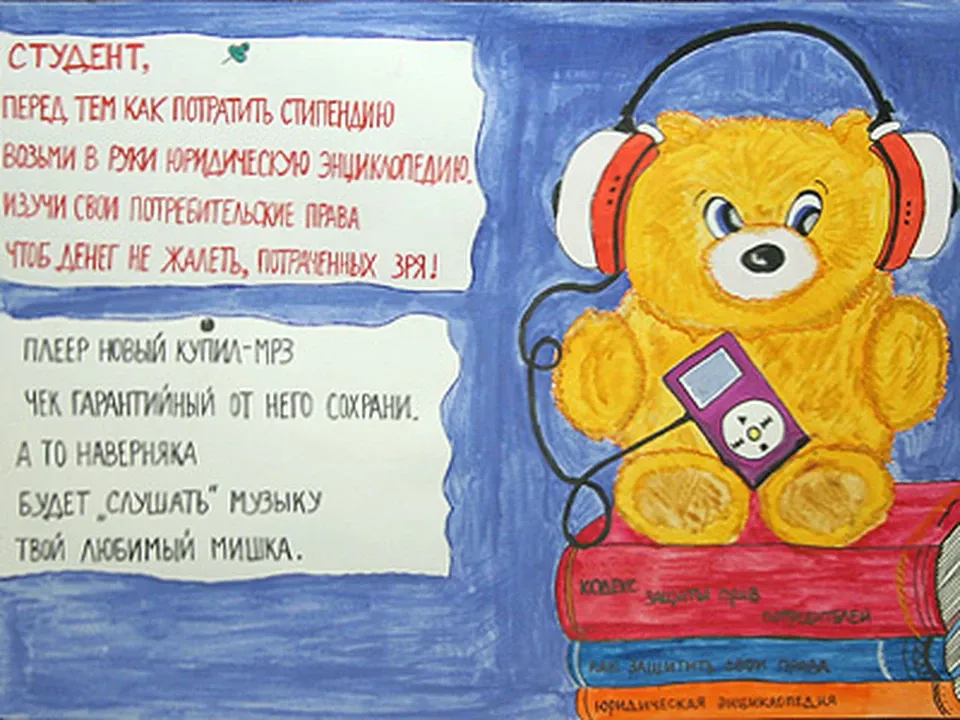 СТУДЕНТ,
ПЕРЕД ТЕМ КАК ПОТРАТИТЬ СТИПЕНДИЮ
ВОЗЬМИ В РУКИ ЮРИДИЧЕСКУЮ ЭНЦИКЛОПЕДИЮ.
ИЗУЧИ СВОИ ПОТРЕБИТЕЛЬСКИЕ ПРАВА
ЧТОБ ДЕНЕГ НЕ ЖАЛЕТЬ, ПОТРАЧЕННЫХ ЗРЯ!
ПЛЕЕР НОВЫЙ КУПИЛ-МРЗ
ЧЕК ГАРАНТИЙНЫЙ ОТ НЕГО СОХРАНИ.
А ТО НАВЕРНЯКА
БУДЕТ „СЛУШАТЬ" МУЗЫКУ
ТВОЙ ЛЮБИМЫЙ МИШКА.
КОДЕКС
ЗАЩИТЫ ПРАВ
ПОТРЕБИТЕЛЕЙ
КАК ЗАЩИТИТЬ СВОИ ПРАВА
ЮРИДИЧЕСКАЯ ЭНЦИКЛОПЕДИЯ